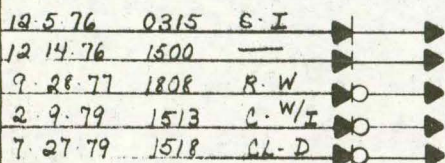 12 5.76 0315 S. I
12 14.76 1500 —
9. 28.77 1808 R. W
2. 9.79 1513 C. W/I
7. 27.79 1518 CL- D